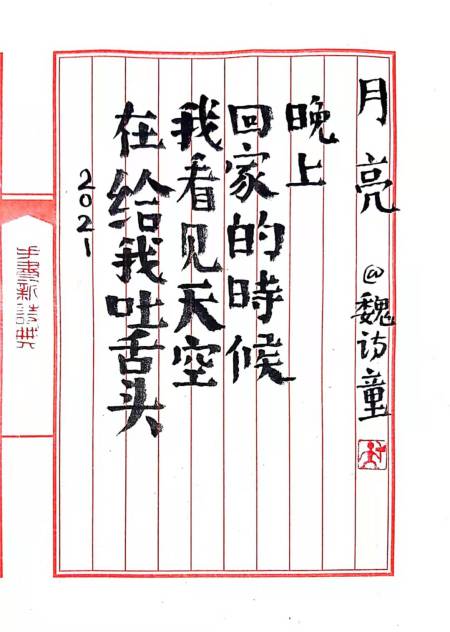 月亮 @魏访童
晚上
回家的時候
我看见天空
在给我吐舌头
2021
手書新詩典